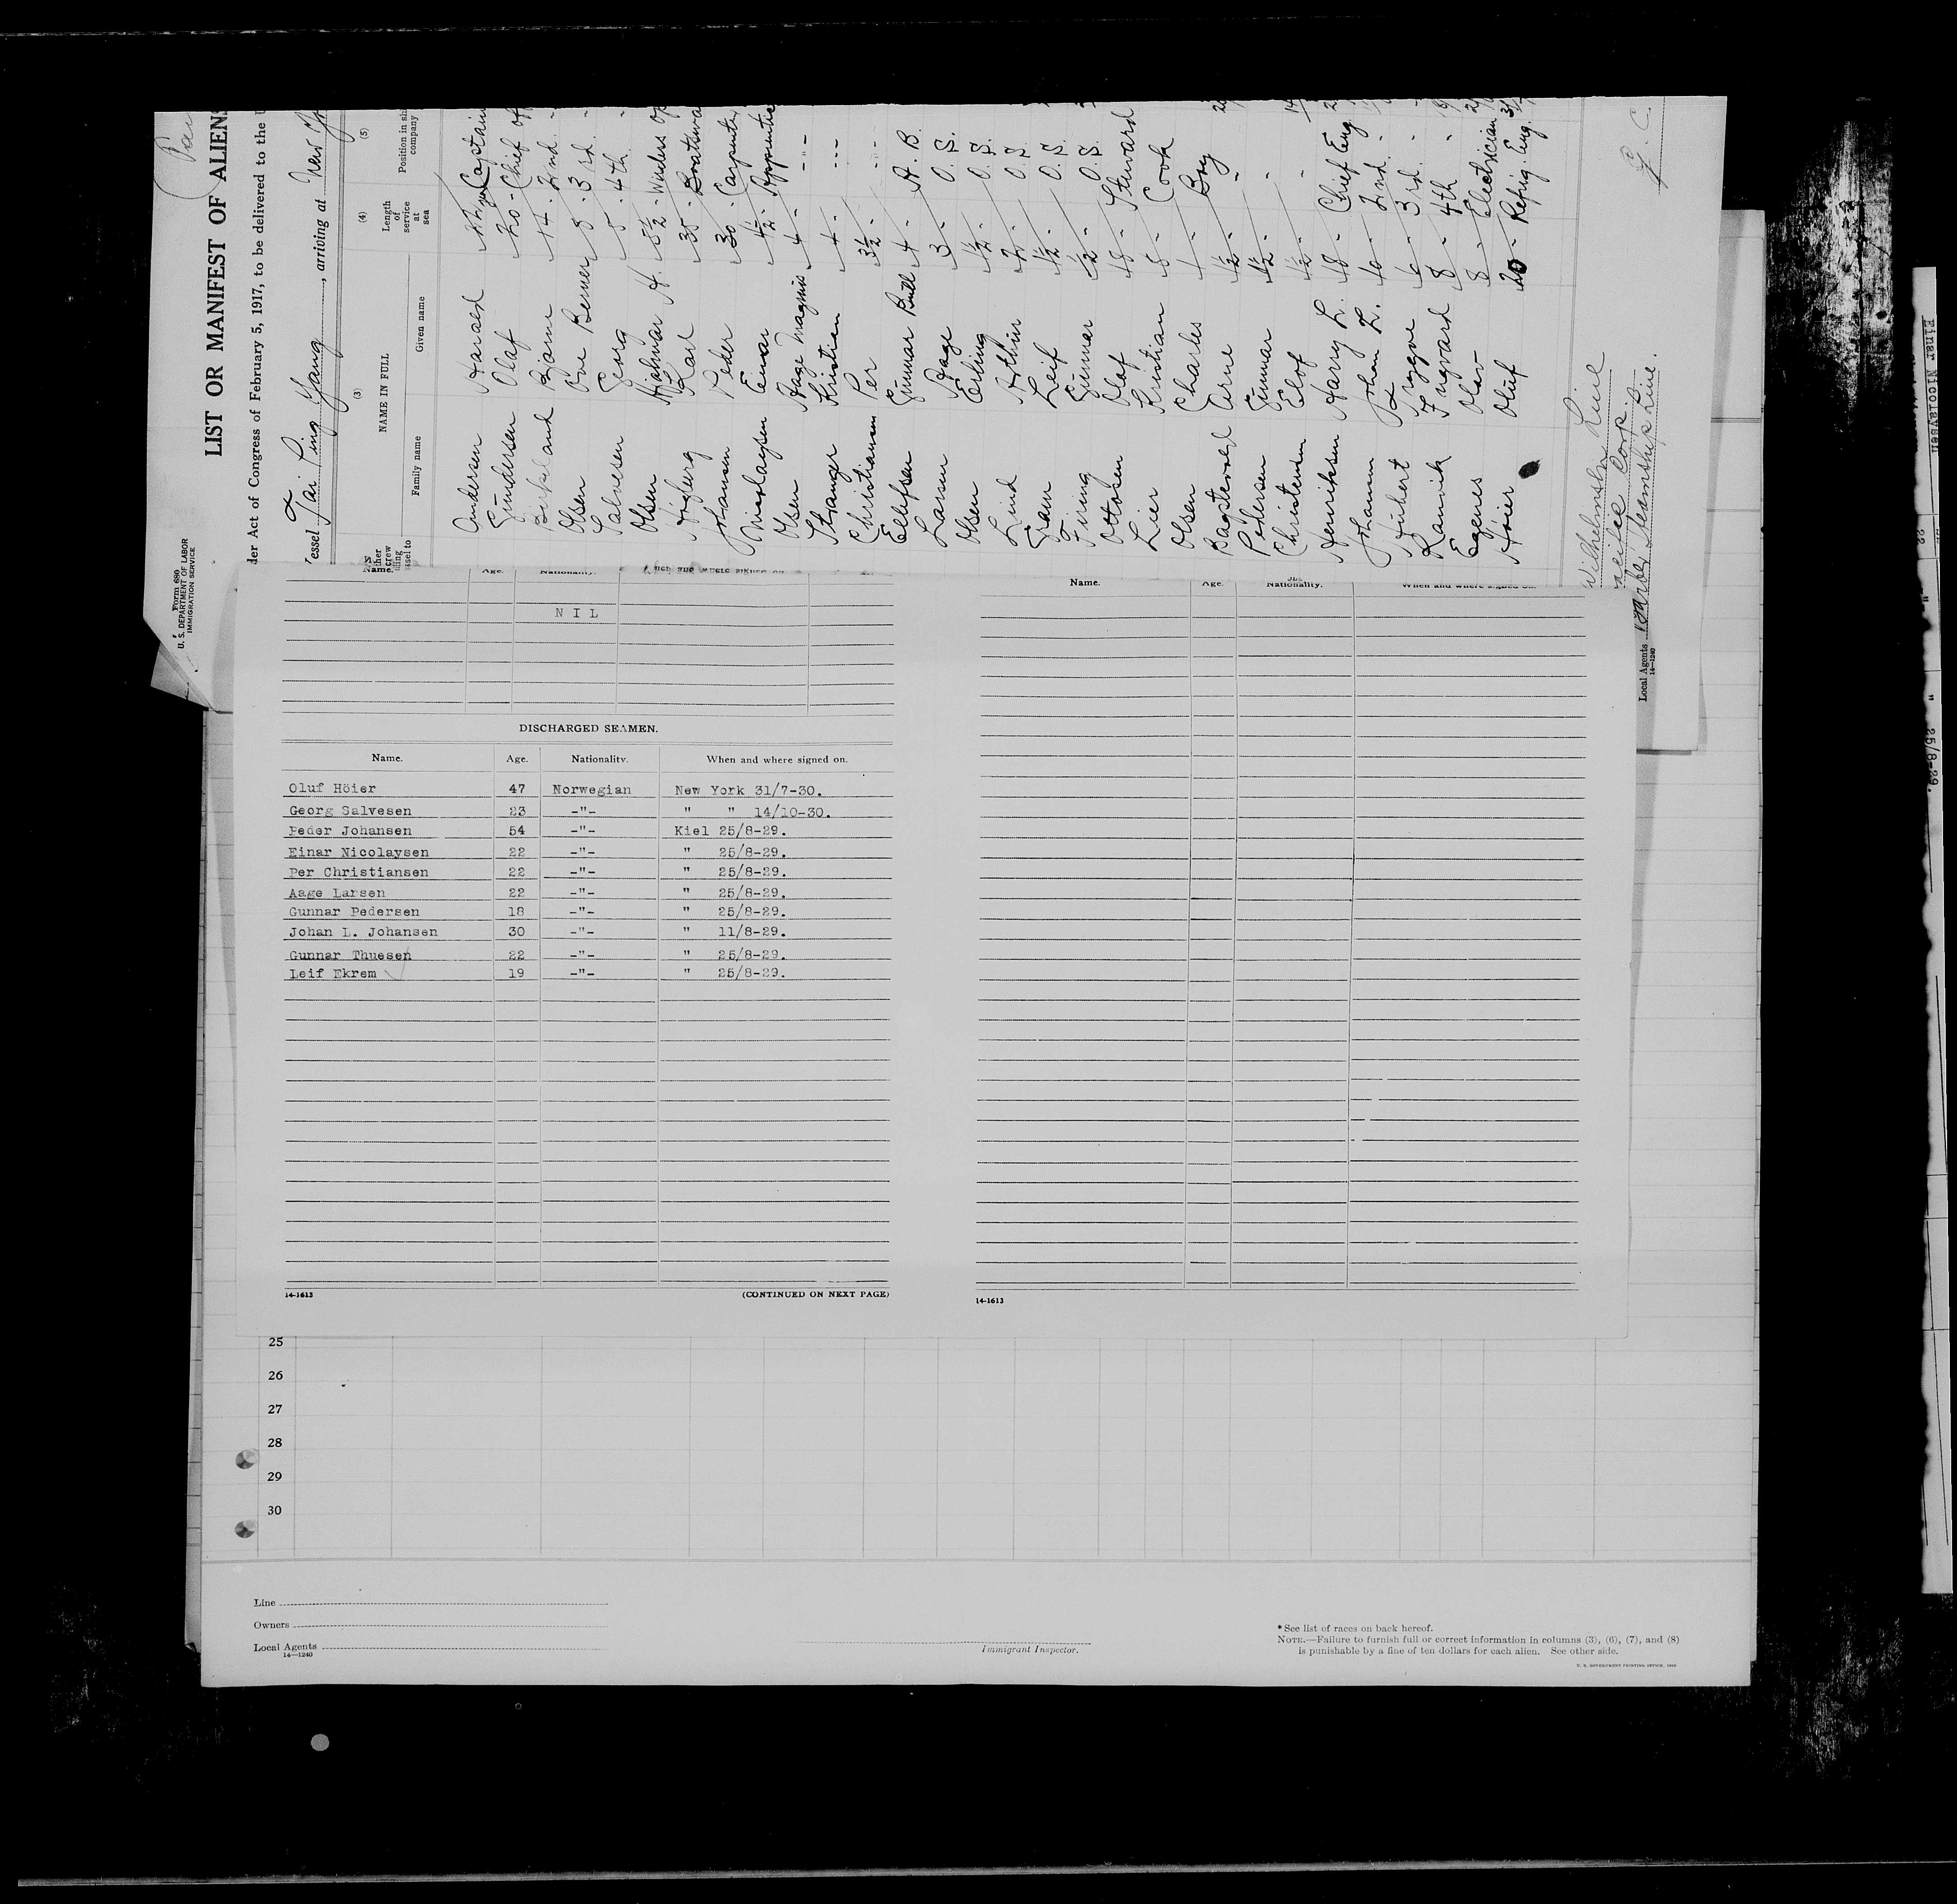 Form 680
U. S. DEPARTMENT OF LABOR
IMMIGRATION SERVICE
LIST OR MANIFEST OF ALIENS
der Act of Congress of February 5, 1917, to be delivered to the U
Vessel Tai Ping Yang, arriving at New Yo
(3) (4) (5)
NAME IN FULL Length of service at sea Position in shi company
Family name Given name
Andersen Harald Captain
Gundersen Olaf 20 - Chief Of
Birkeland Bjarne 14 - 2nd. -
Olsen Ove Berner 8 - 3rd. -
Salvesen Georg 5 - 4th. -
Olsen Hjalmar A. 5½ - Wireless Op
Karl 35 - Boatswa
Johansen Peder 30 - Carpenter
Nicolaysen Einar 4½ - Apprentice
Olsen Aage Magnus 4 - - " -
Stranger Kristian 4 - - " -
Christiansen Per 3½ - - " -
Ellefsen Gunnar Bull 4 - A. B.
Larsen Aage 3 - O. S.
Olsen Erling 1½ - O. S.
Lind Arthur 2 - O. S.
Gran Leif 1½ - O. S.
Firing Gunnar ½ - O. S.
Ottosen Olaf 18 - Steward
Lier Kristian 8 - Cook
Olsen Charles 1 - Boy
Bagstevold Arne 1½ - -
Pedersen Gunnar 1½ - -
Christensen Elof 1½ - -
Henriksen Harry L. 18 - Chief Eng.
Johansen Johan L. 10 - 2nd. -
Hubert Trygve 6 - 3rd. -
Ranvik Ingvard 8 - 4th -
Egenes Olav 8 - Electrician
Höier Oluf 20 - Refrig. Eng.
Wilhelmsen Line
Local Agents Barber Steamship Line.
14—1240
Name. Age. Nationality.
NIL
DISCHARGED SEAMEN.
Name. Age. Nationality. When and where signed on.
Oluf Höier 47 Norwegian New York 31/7-30.
Georg Salvesen 23 -"- " " 14/10-30.
Peder Johansen 54 -"- Kiel 25/8-29.
Einar Nicolaysen 22 -"- " 25/8-29.
Per Christiansen 22 -"- " 25/8-29.
Aage Larsen 22 -"- " 25/8-29.
Gunnar Pedersen 18 -"- " 25/8-29.
Johan L. Johansen 30 -"- " 11/8-29.
Gunnar Thuesen 22 -"- " 25/8-29.
Leif Ekrem 19 -"- " 25/8-29.
14-1613 (CONTINUED ON NEXT PAGE)
Name. Age. Nationality. When and where signed on.
14-1613
25
26
27
28
29
30
Line
Owners
Local Agents
14—1240
Immigrant Inspector.
* See list of races on back hereof.
NOTE.—Failure to furnish full or correct information in columns (3), (6), (7), and (8)
is punishable by a fine of ten dollars for each alien. See other side.
U. S. GOVERNMENT PRINTING OFFICE
Einar Nicolaysen 22 -"- " 25/8-29.